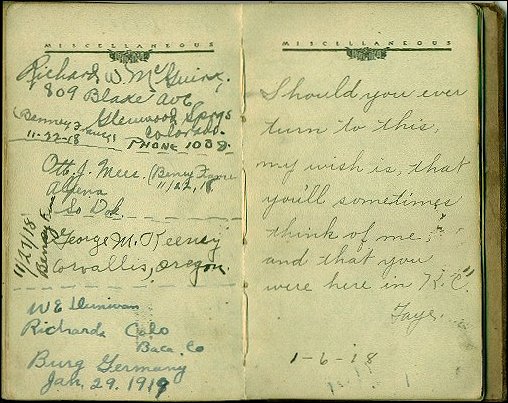 MISCELLANEOUS
Richard W. McGuire,
809 Blake Ave
Glenwood Spgs
Colorado.
(Benney
11-22-18
PHONE 108
Ott. J.
(Beney
11/22, 18
Alpena
So Dak
11/27/18
George M. Keeney
Corvallis, Oregon.
W E
Richards Colo
Baca. Co
Burg Germany
Jan. 29. 1919
MISCELLANEOUS
Should you ever
turn to this,
my wish is, that
you'll sometimes
think of me,
and that you
were here in K.C."
Faye.
1-6-18